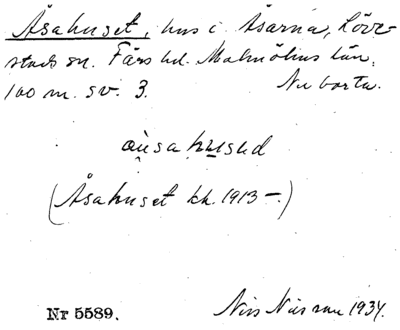 Åsahuset, hus i Åsarna, Löve-
stads sn. Färs hd. Malmöhus län.
100 m. sv. 3. Nu borta.
ausahused
(Åsahuset kk. 1913 –.)
Nr 5589. Nils Nilsson 1934.